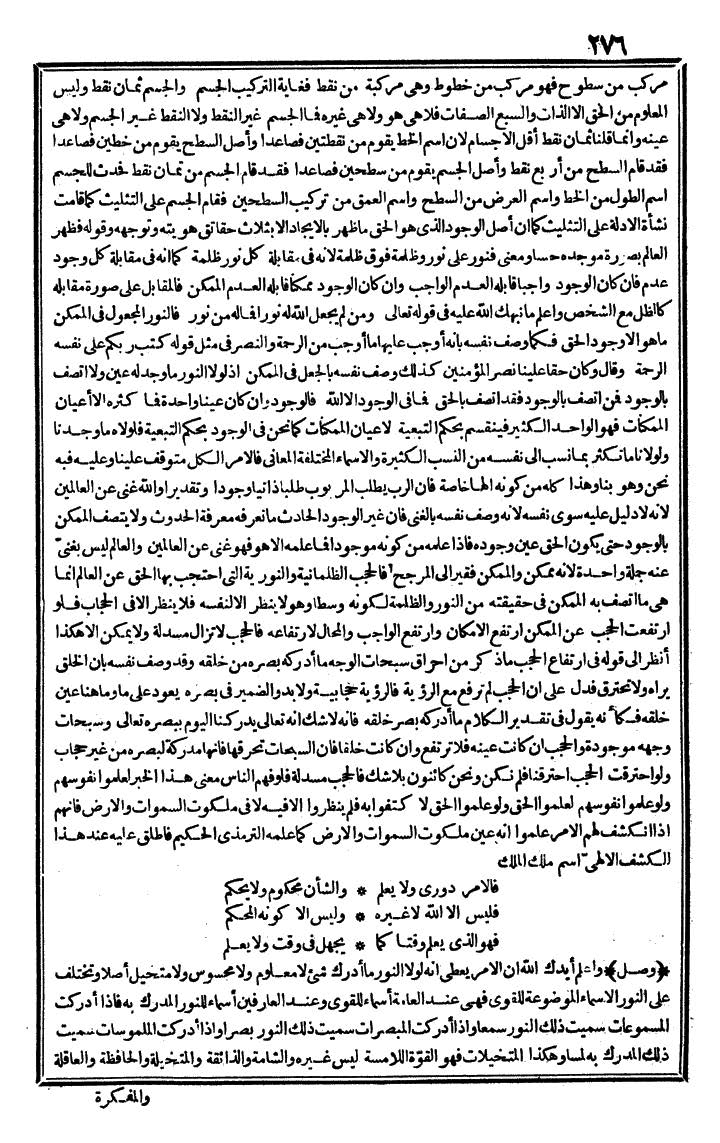 ٢٧٦
مركب من سطوح فهو مركب من خطوط وهى مركبة من نقط فغاية التركيب الجسم والجسم ثمان نقط وليس
المعلوم من الحق الا الذات والسبع الصفات فلا هى هو ولا هى غيره فما الجسم غير النقط ولا النقط غير الجسم ولا هى
عينه وانما قلنا ثمان نقط أقل الاجسام لان اسم الخط يقوم من نقطتين فصاعدا وأصل السطح يقوم من خطين فصاعدا
فقد قام السطح من أربع نقط وأصل الجسم يقوم من سطحين فصاعدا فقد قام الجسم من ثمان نقط فحدث للجسم
اسم الطول من الخط واسم العرض من السطح واسم العمق من تركيب السطحين فقام الجسم على التثليث كما قامت
نشأة الادلة على التثليث كما ان أصل الوجود الذى هو الحق ما ظهر بالايجاد الا بثلاث حقائق هويته وتوجهه وقوله فظهر
العالم بصورة موجده حسا ومعنى فنور على نور وظلمة فوق ظلمة لانه فى مقابلة كل نور ظلمة كما انه فى مقابلة كل وجود
عدم فان كان الوجود واجبا قابله العدم الواجب وان كان الوجود ممكنا قابله العدم الممكن فالمقابل على صورة مقابله
كالظل مع الشخص واعلم ما نبهك الله عليه فى قوله تعالى ومن لم يجعل الله له نورا فما له من نور فالنور المجعول فى الممكن
ما هو الا وجود الحق فكما وصف نفسه بانه أوجب عليها ما أوجب من الرحمة والنصر فى مثل قوله كتب ربكم على نفسه
الرحمة وقال وكان حقا علينا نصر المؤمنين كذلك وصف نفسه بالجعل فى الممكن اذ لولا النور ما وجد له عين ولا اتصف
بالوجود فمن اتصف بالوجود فقد اتصف بالحق فما فى الوجود الا الله فالوجود وان كان عينا واحدة فما كثره الا أعيان
الممكنات فهو الواحد الكثير فينقسم بحكم التبعية لاعيان الممكنات كما نحن فى الوجود بحكم التبعية فلولاه ما وجدنا
ولولانا ما تكثر بما نسب الى نفسه من النسب الكثيرة والاسماء المختلفة المعانى فالامر الكل متوقف علينا وعليه فبه
نحن وهو بنا وهذا كله من كونه الها خاصة فان الرب يطلب المربوب طلبا ذاتيا وجودا وتقديرا والله غنى عن العالمين
لانه لا دليل عليه سوى نفسه لانه وصف نفسه بالغنى فان غير الوجود الحادث ما نعرفه معرفة الحدوث ولا يتصف الممكن
بالوجود حتى يكون الحق عين وجوده فاذا علمه من كونه موجودا فما علمه الا هو فهو غنى عن العالمين والعالم ليس بغنىّ
عنه جملة واحدة لانه ممكن والممكن فقير الى المرجح فالحجب الظلمانية والنورية التى احتجب بها الحق عن العالم انما
هى ما اتصف به الممكن فى حقيقته من النور والظلمة لكونه وسطا وهو لا ينظر الا لنفسه فلا ينظر الا فى الحجاب فلو
ارتفعت الحجب عن الممكن ارتفع الامكان وارتفع الواجب والمحال لارتفاعه فالحجب لا تزال مسدلة ولا يمكن الا هكذا
أنظر الى قوله فى ارتفاع الحجب ما ذكر من احراق سبحات الوجه ما أدركه بصره من خلقه وقد وصف نفسه بان الخلق
يراه ولا تحترق فدل على ان الحجب لم ترفع مع الرؤية فالرؤية حجابية ولا بد والضمير فى بصره يعود على ما وما هنا عين
خلقه فكأنه يقول فى تقدير الكلام ما أدركه بصر خلقه فانه لا شك انه تعالى يدركنا اليوم ببصره تعالى وسبحات
وجهه موجودة والحجب ان كانت عينه فلا ترتفع وان كانت خلقا فان السبحات تحرقها فانها مدركة لبصره من غير حجاب
ولو احترقت الحجب احترقنا فلم نكن ونحن كائنون بلا شك فالحجب مسدلة فلو فهم الناس معنى هذا الخبر لعلموا نفوسهم
ولو علموا نفوسهم لعلموا الحق ولو علموا الحق لا كتفوا به فلم ينظروا الا فيه لا فى ملكوت السموات والارض فانهم
اذا انكشف لهم الامر علموا انه عين ملكوت السموات والارض كما علمه الترمذى الحكيم فاطلق عليه عند هذا
الكشف الالهىّ اسم ملك الملك
فالامر دورى ولا يعلم * والشأن محكوم ولا يحكم
فليس الا الله لا غيره * وليس الا كونه المحكم
فهو الذى يعلم وقتا كما * يجهل فى وقت ولا يعلم
﴿وصل﴾ واعلم أيدك الله ان الامر يعطى انه لولا النور ما أدرك شئ لا معلوم ولا محسوس ولا متخيل أصلا وتختلف
على النور الاسماء الموضوعة للقوى فهى عند العامة أسماء للقوى وعند العارفين أسماء للنور المدرك به فاذا أدركت
المسموعات سميت ذلك النور سمعا واذا أدركت المبصرات سميت ذلك النور بصرا واذا أدركت الملموسات سميت
ذلك المدرك به لمسا وهكذا المتخيلات فهو القوّة اللامسة ليس غيره والشامة والذائقة والمتخيلة والحافظة والعاقلة
والمفكرة